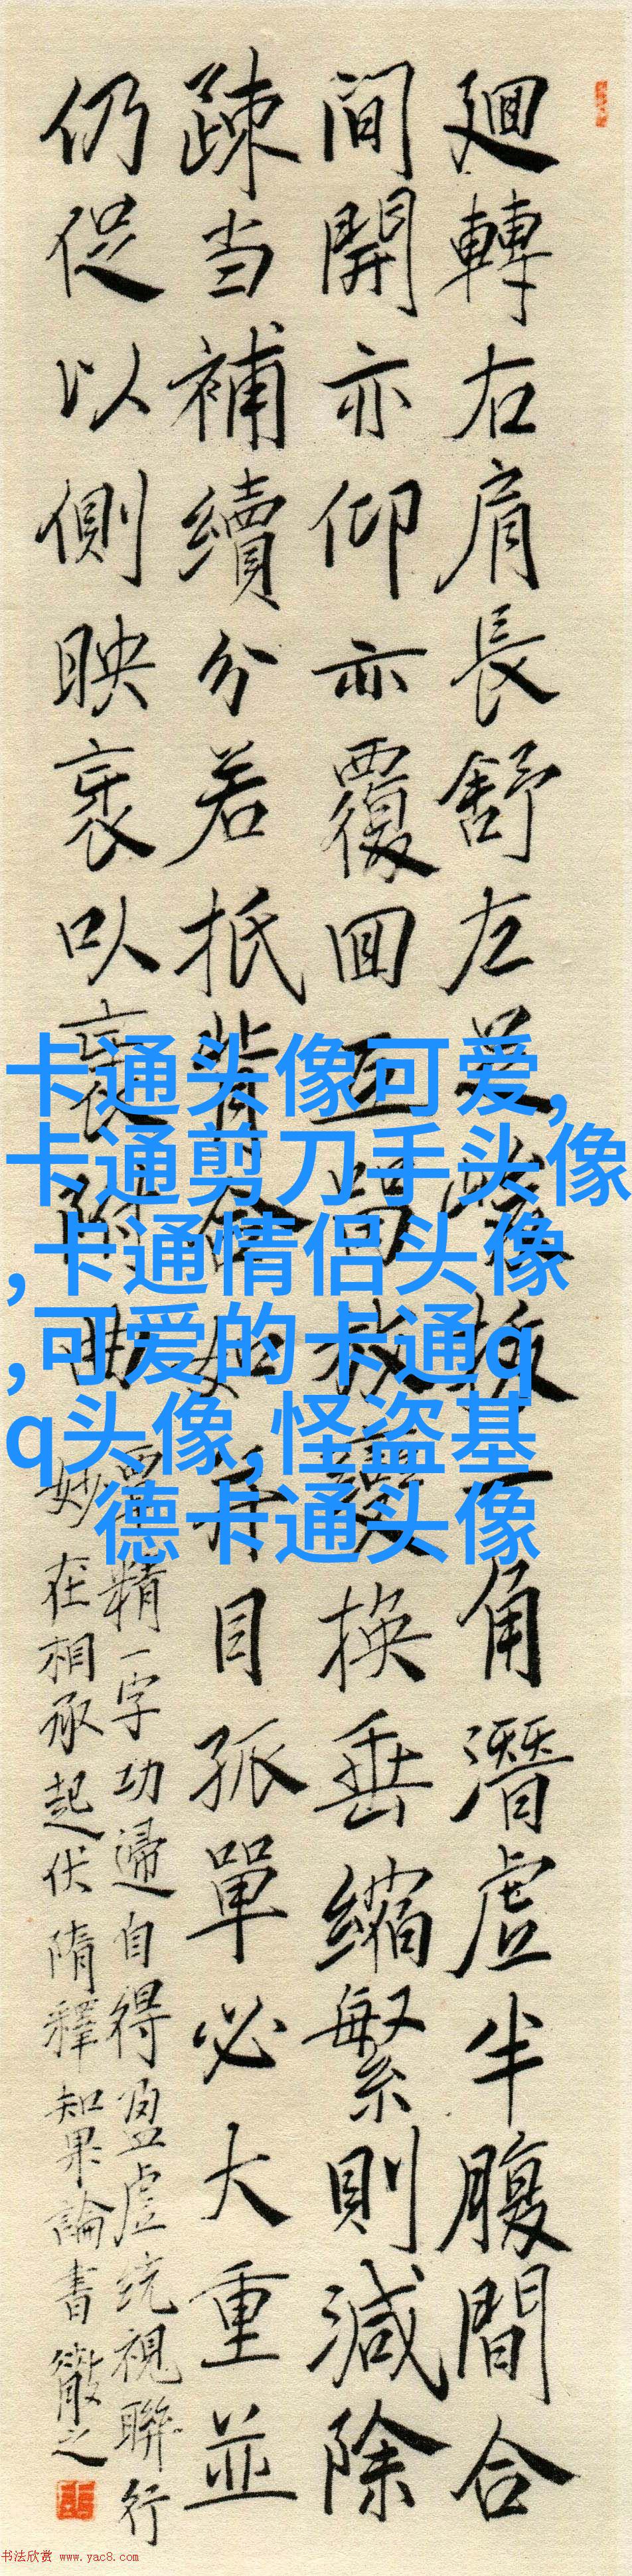 廻轉右肩長舒左足峻拔一角潛虛半腹間合
間開亦仰亦覆回互留放變換垂縮繁則減除
疎当補續分若抵背合如并目孤單必大重並
仍促以側映裹以裹附曲
覃精一字功歸自得盈虛統視聯行
妙在相承起伏隋釋智果論書徽之
卡通头像可爱,
卡通剪刀手头像
,卡通情侣头像
,可爱的卡通q
q头像,怪盗基
德卡通头像
书法欣赏 www.yac8.com